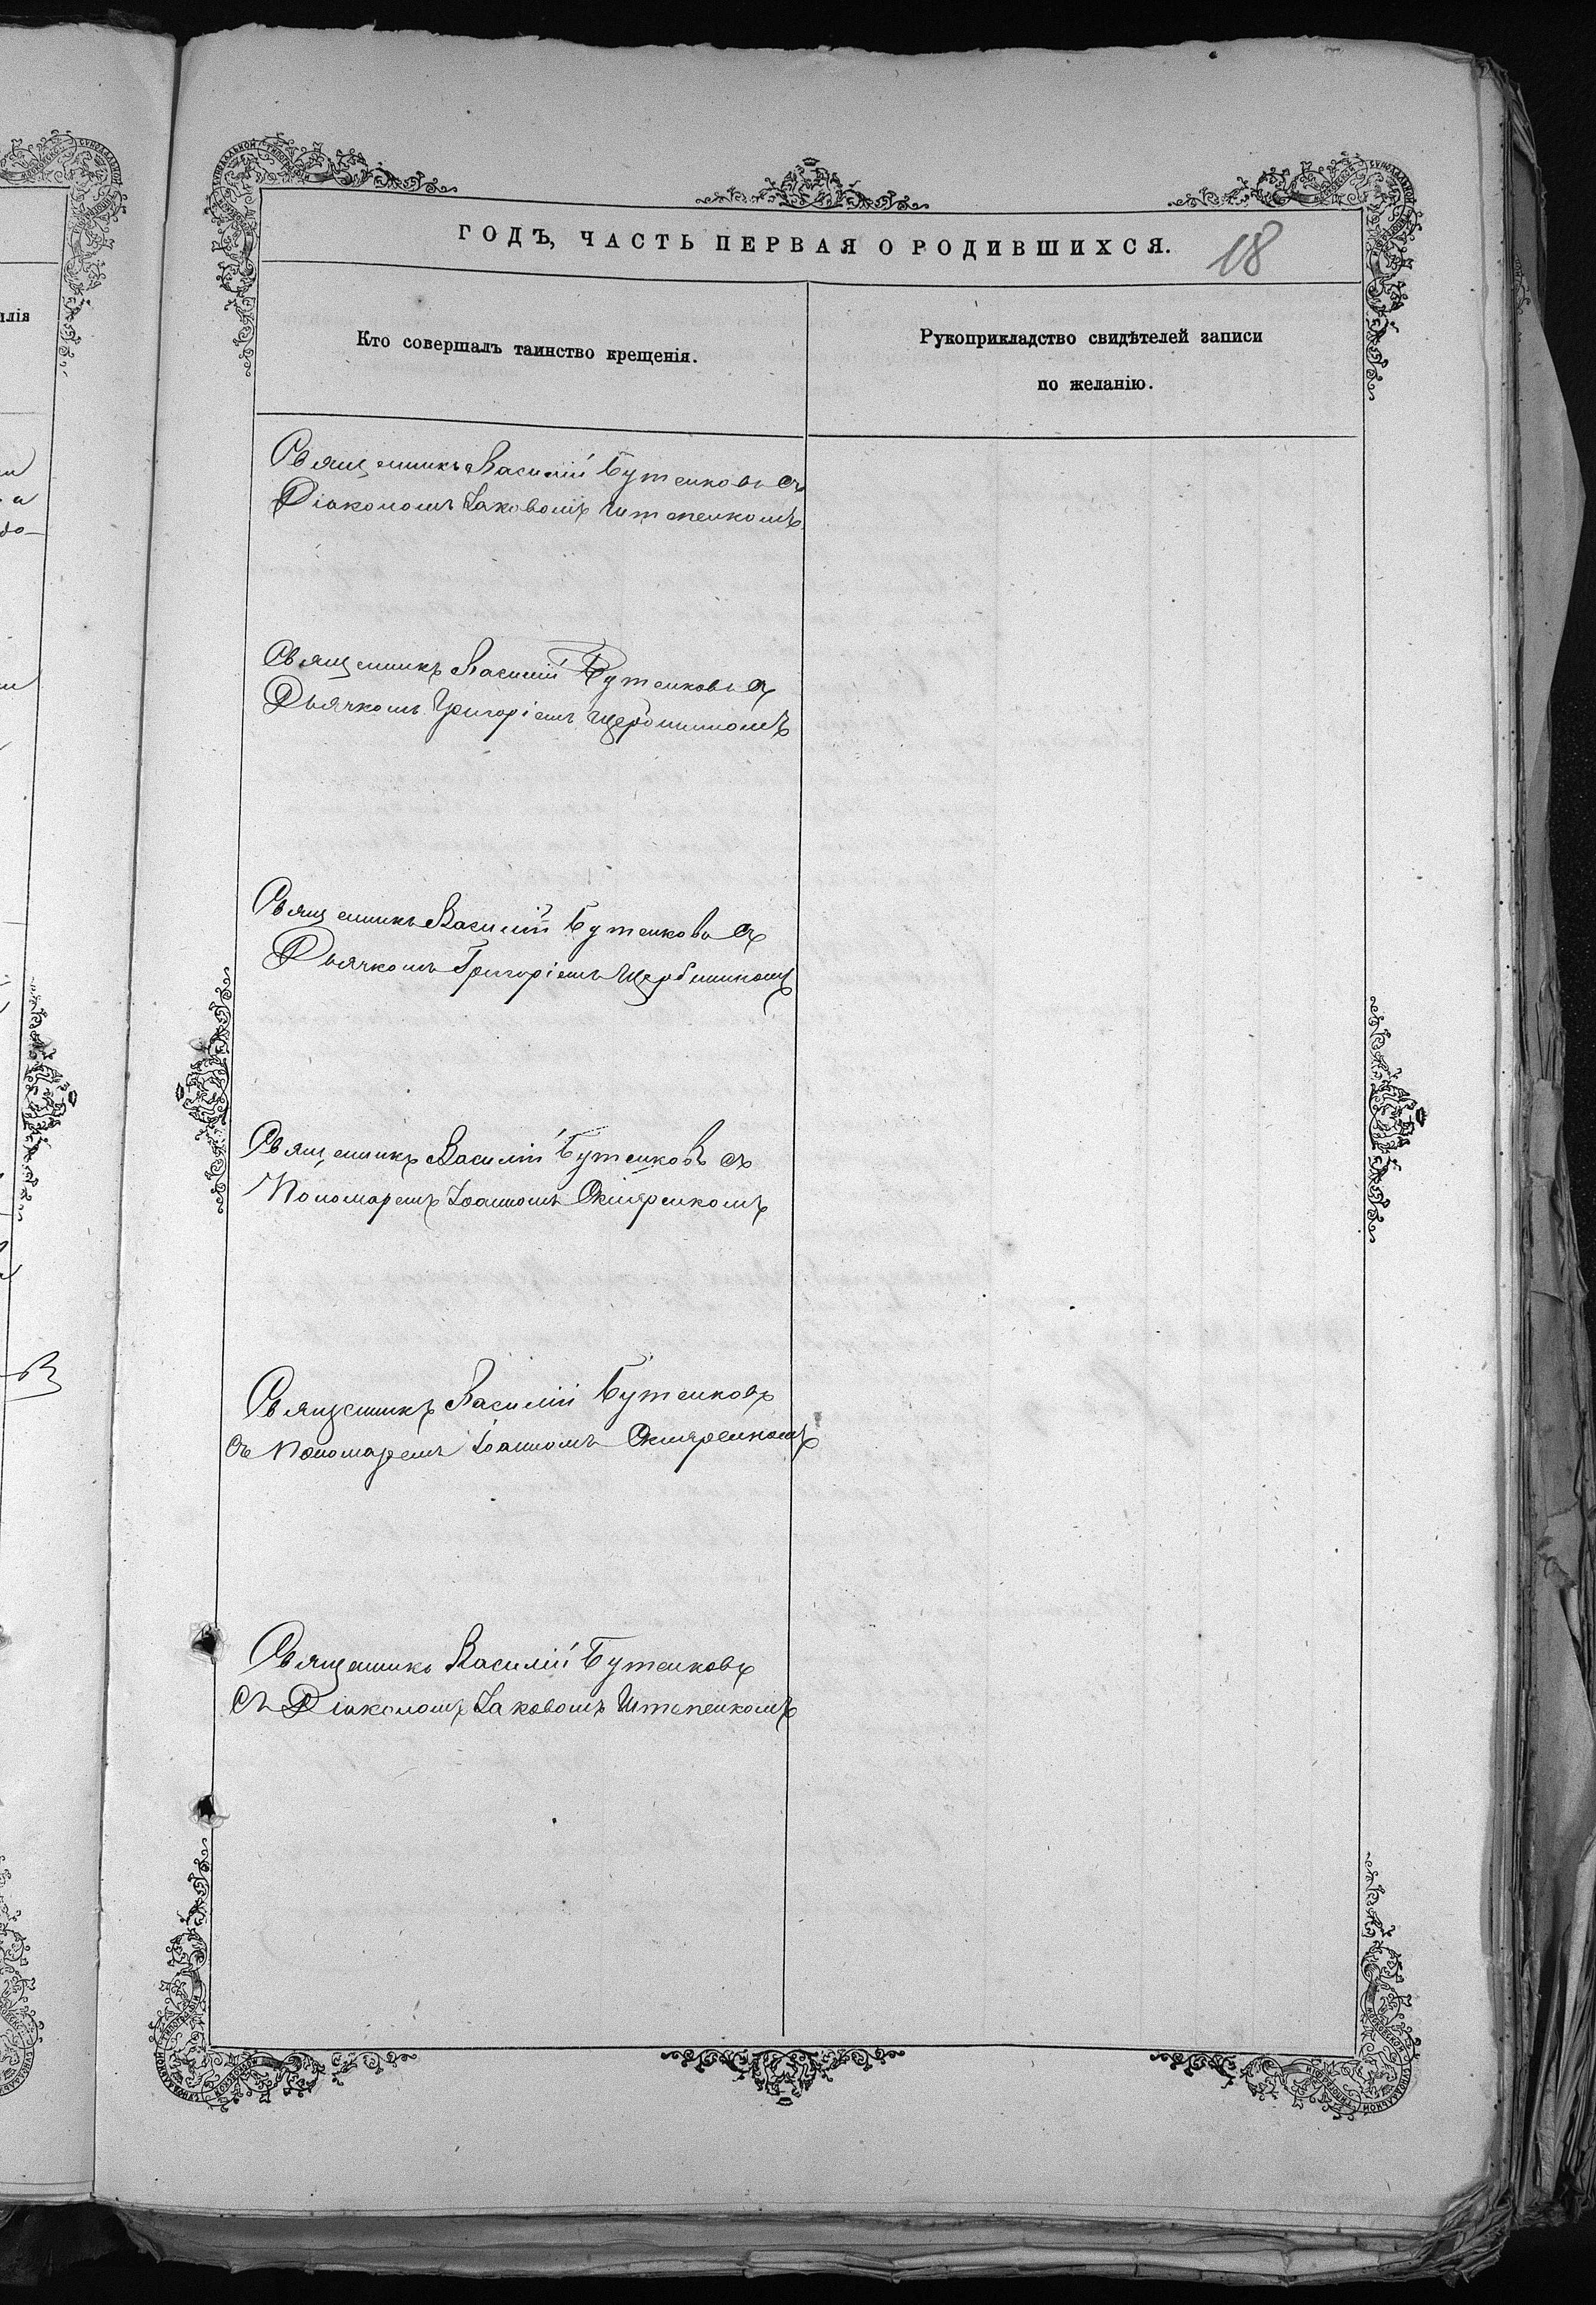 ГОДЪ, ЧАСТЬ ПЕРВАЯ О РОДИВШИХСЯ.
18
Кто совершалъ таинство крещенія.
Рукоприкладство свидѣтелей записи
по желанію.
Священникъ Василій Бутенковъ съ
Діакономъ Іаковомъ Штепенкомъ
Священникъ Василій Бутенковъ съ
Дьячкомъ Григоріемъ Щербининомъ
Священникъ Василій Бутенковъ съ
Дьячкомъ Григоріемъ
Священникъ Василій Бутенковъ съ
Пономаремъ Іоанномъ
Священникъ Василій Бутенковъ
съ Пономаремъ Іоанномъ
Священникъ Василій Бутенковъ
съ Діакономъ Іаковомъ Штепенкомъ